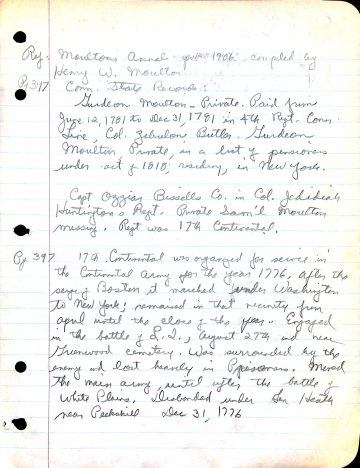 Ref. Moultons Annal pub 1906 compiled by
Henry W. Moulton
Pg 397 Conn. State Records:
Gurdeon Moulton - Private. Paid from
June 12, 1781 to Dec 31, 1781 in 4th Regt. Conn
Line, Col. Zebulon Butler. Gurdeon
Moulton Private, in a list of pensioners
under act of 1818, residing, in New York.
Capt Ozzias Bissells Co. in Col. Jedideah
Huntingtons Regt. Private Sam'l Moulton
missing. Regt was 17th Continental.
Pg 397 17th Continental was organized for service in
the Continental Army for the year 1776, after the
seige of Boston it marched under Washington
to New York; remained in that vicinity from
april until the close of the year. Engaged
in the battle of L.I., August 27th and near
Greenwood cemetery. Was surrounded by the
enemy and lost heavily in Prisoners. Moved
the main army until after the battle of
White Plains. Disbanded under Gen Heath
near Peekskill Dec 31, 1776